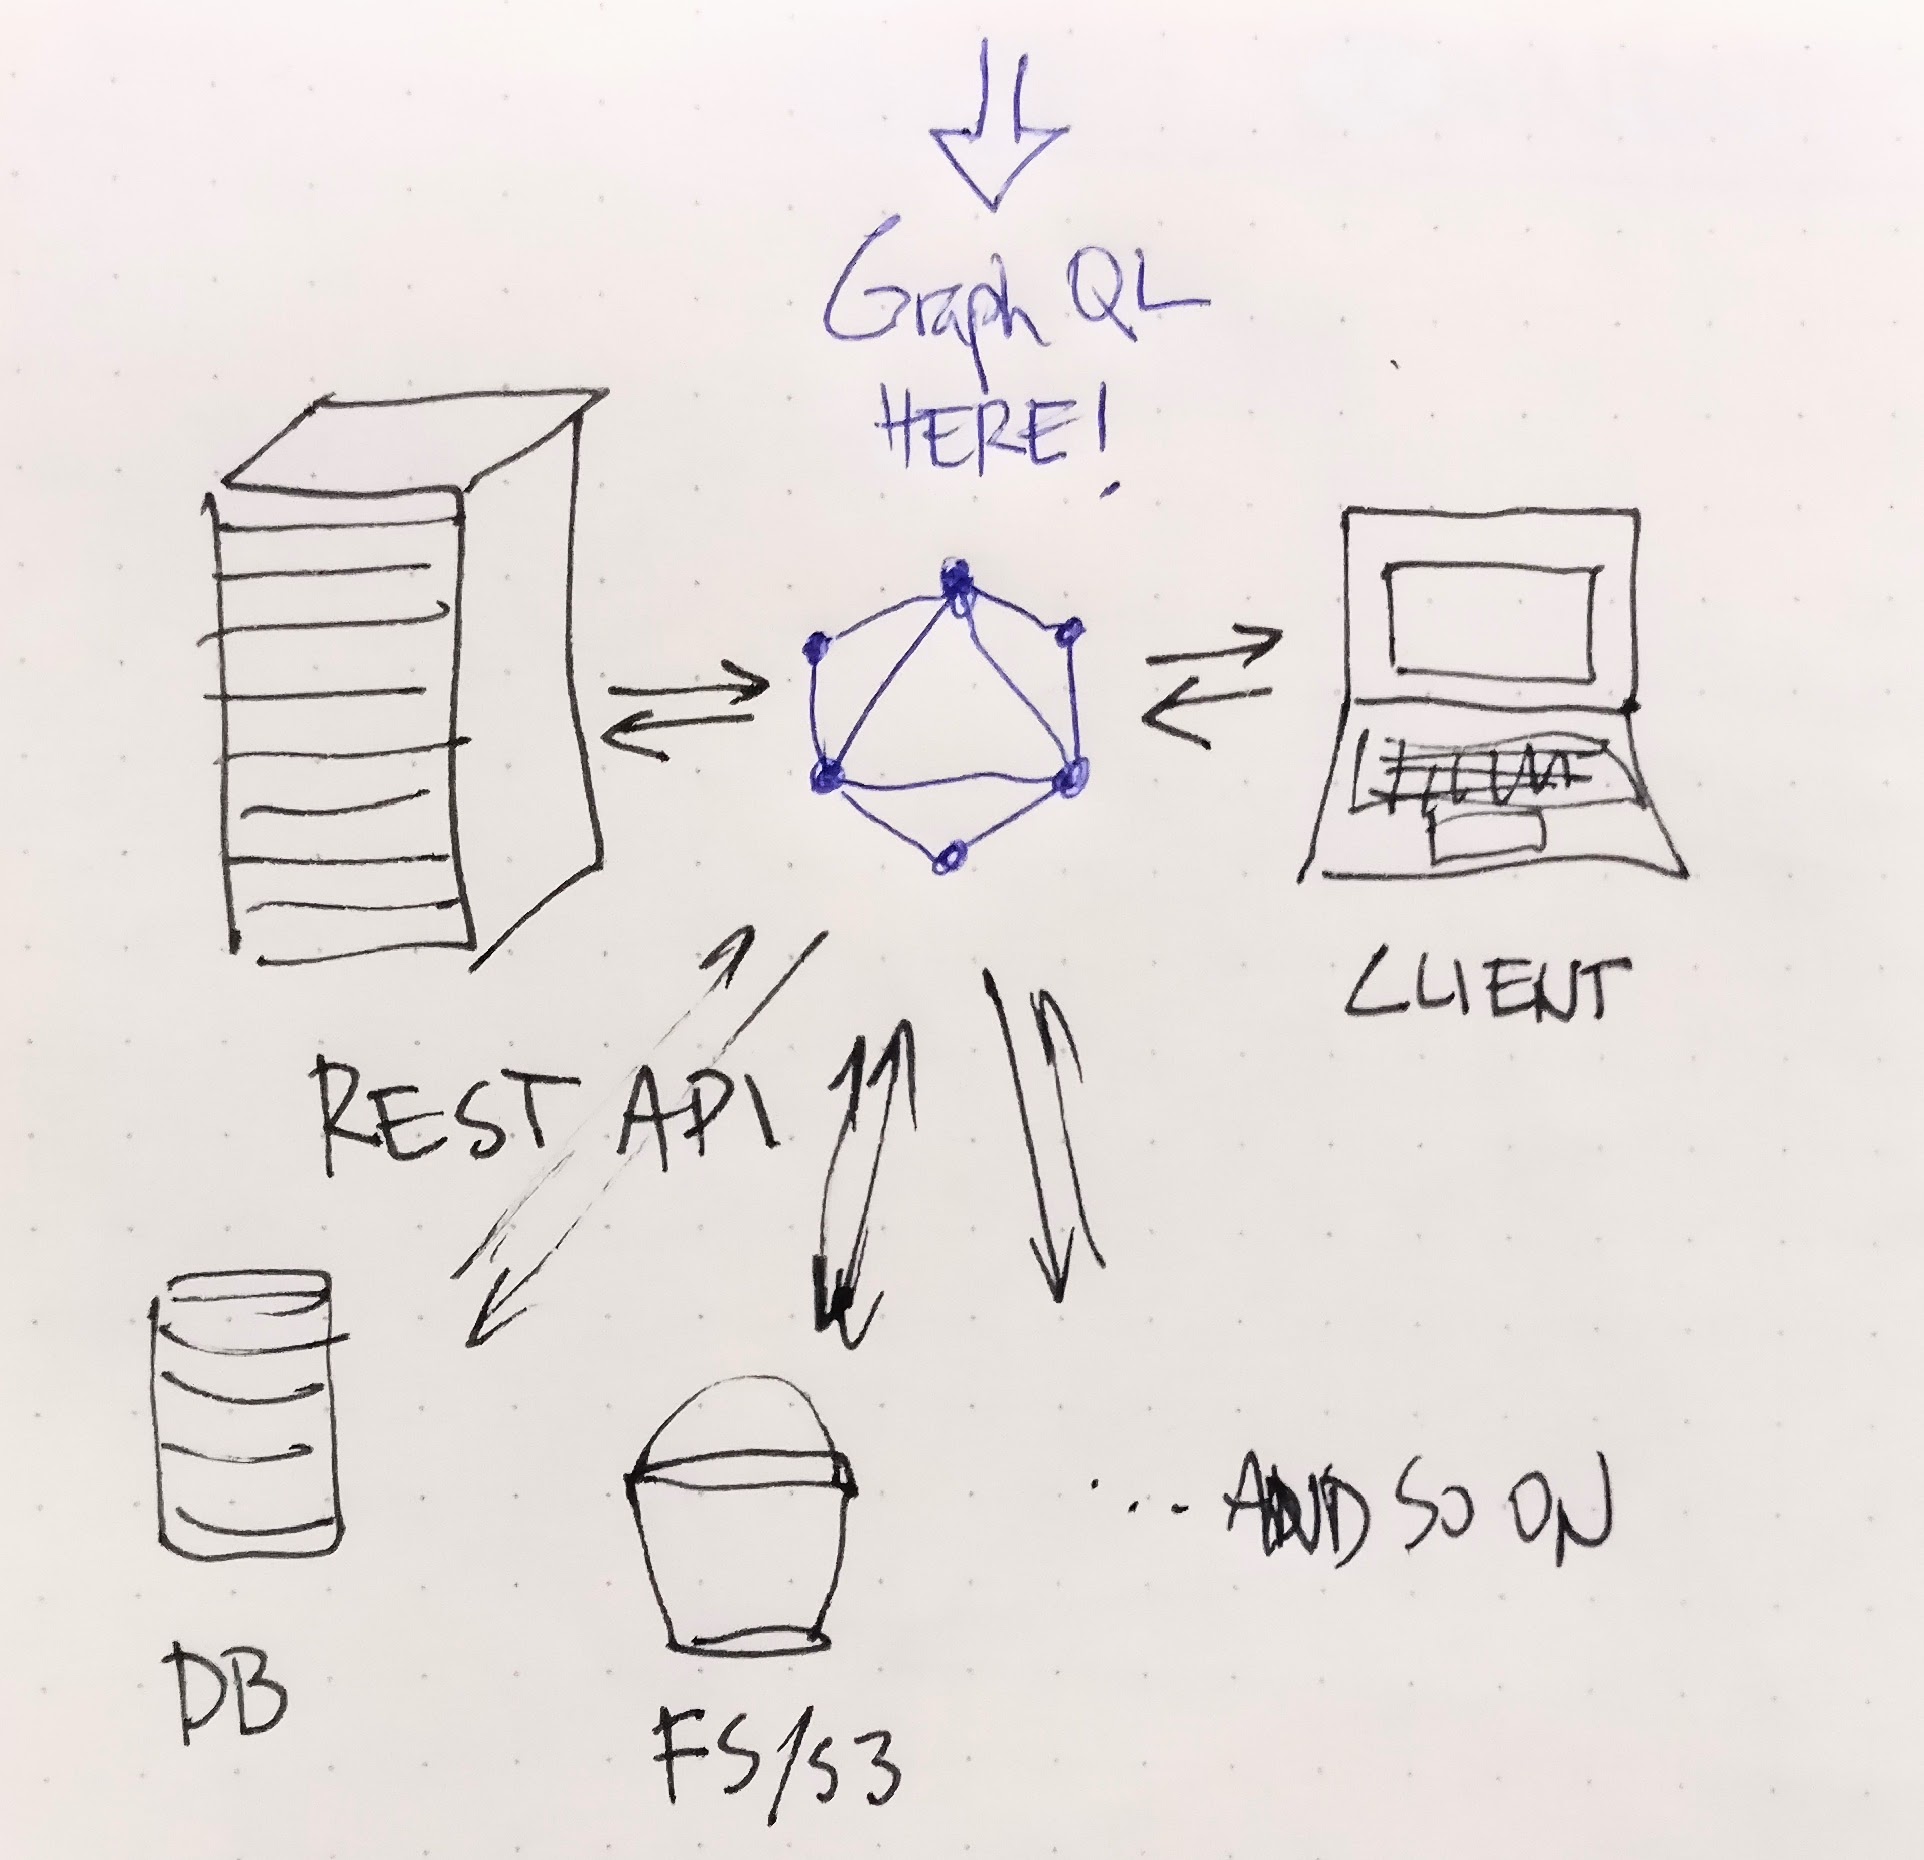 Graph QL
HERE!
CLIENT
REST API
... AND SO ON
DB
FS/S3